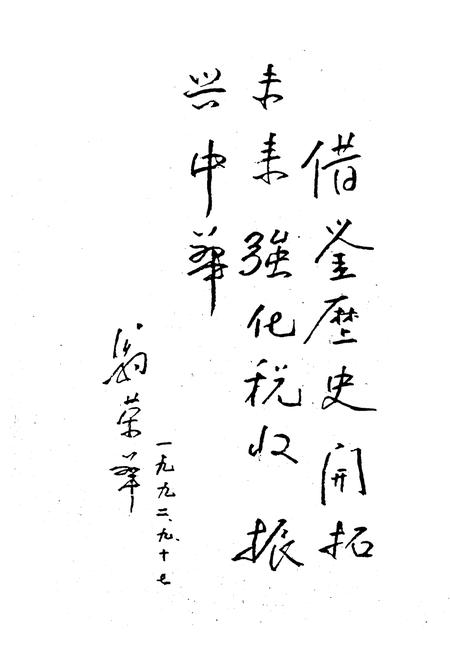 借鉴歷史開拓
未来强化税收振
兴中華
翁荣華
一九九二、九、十七